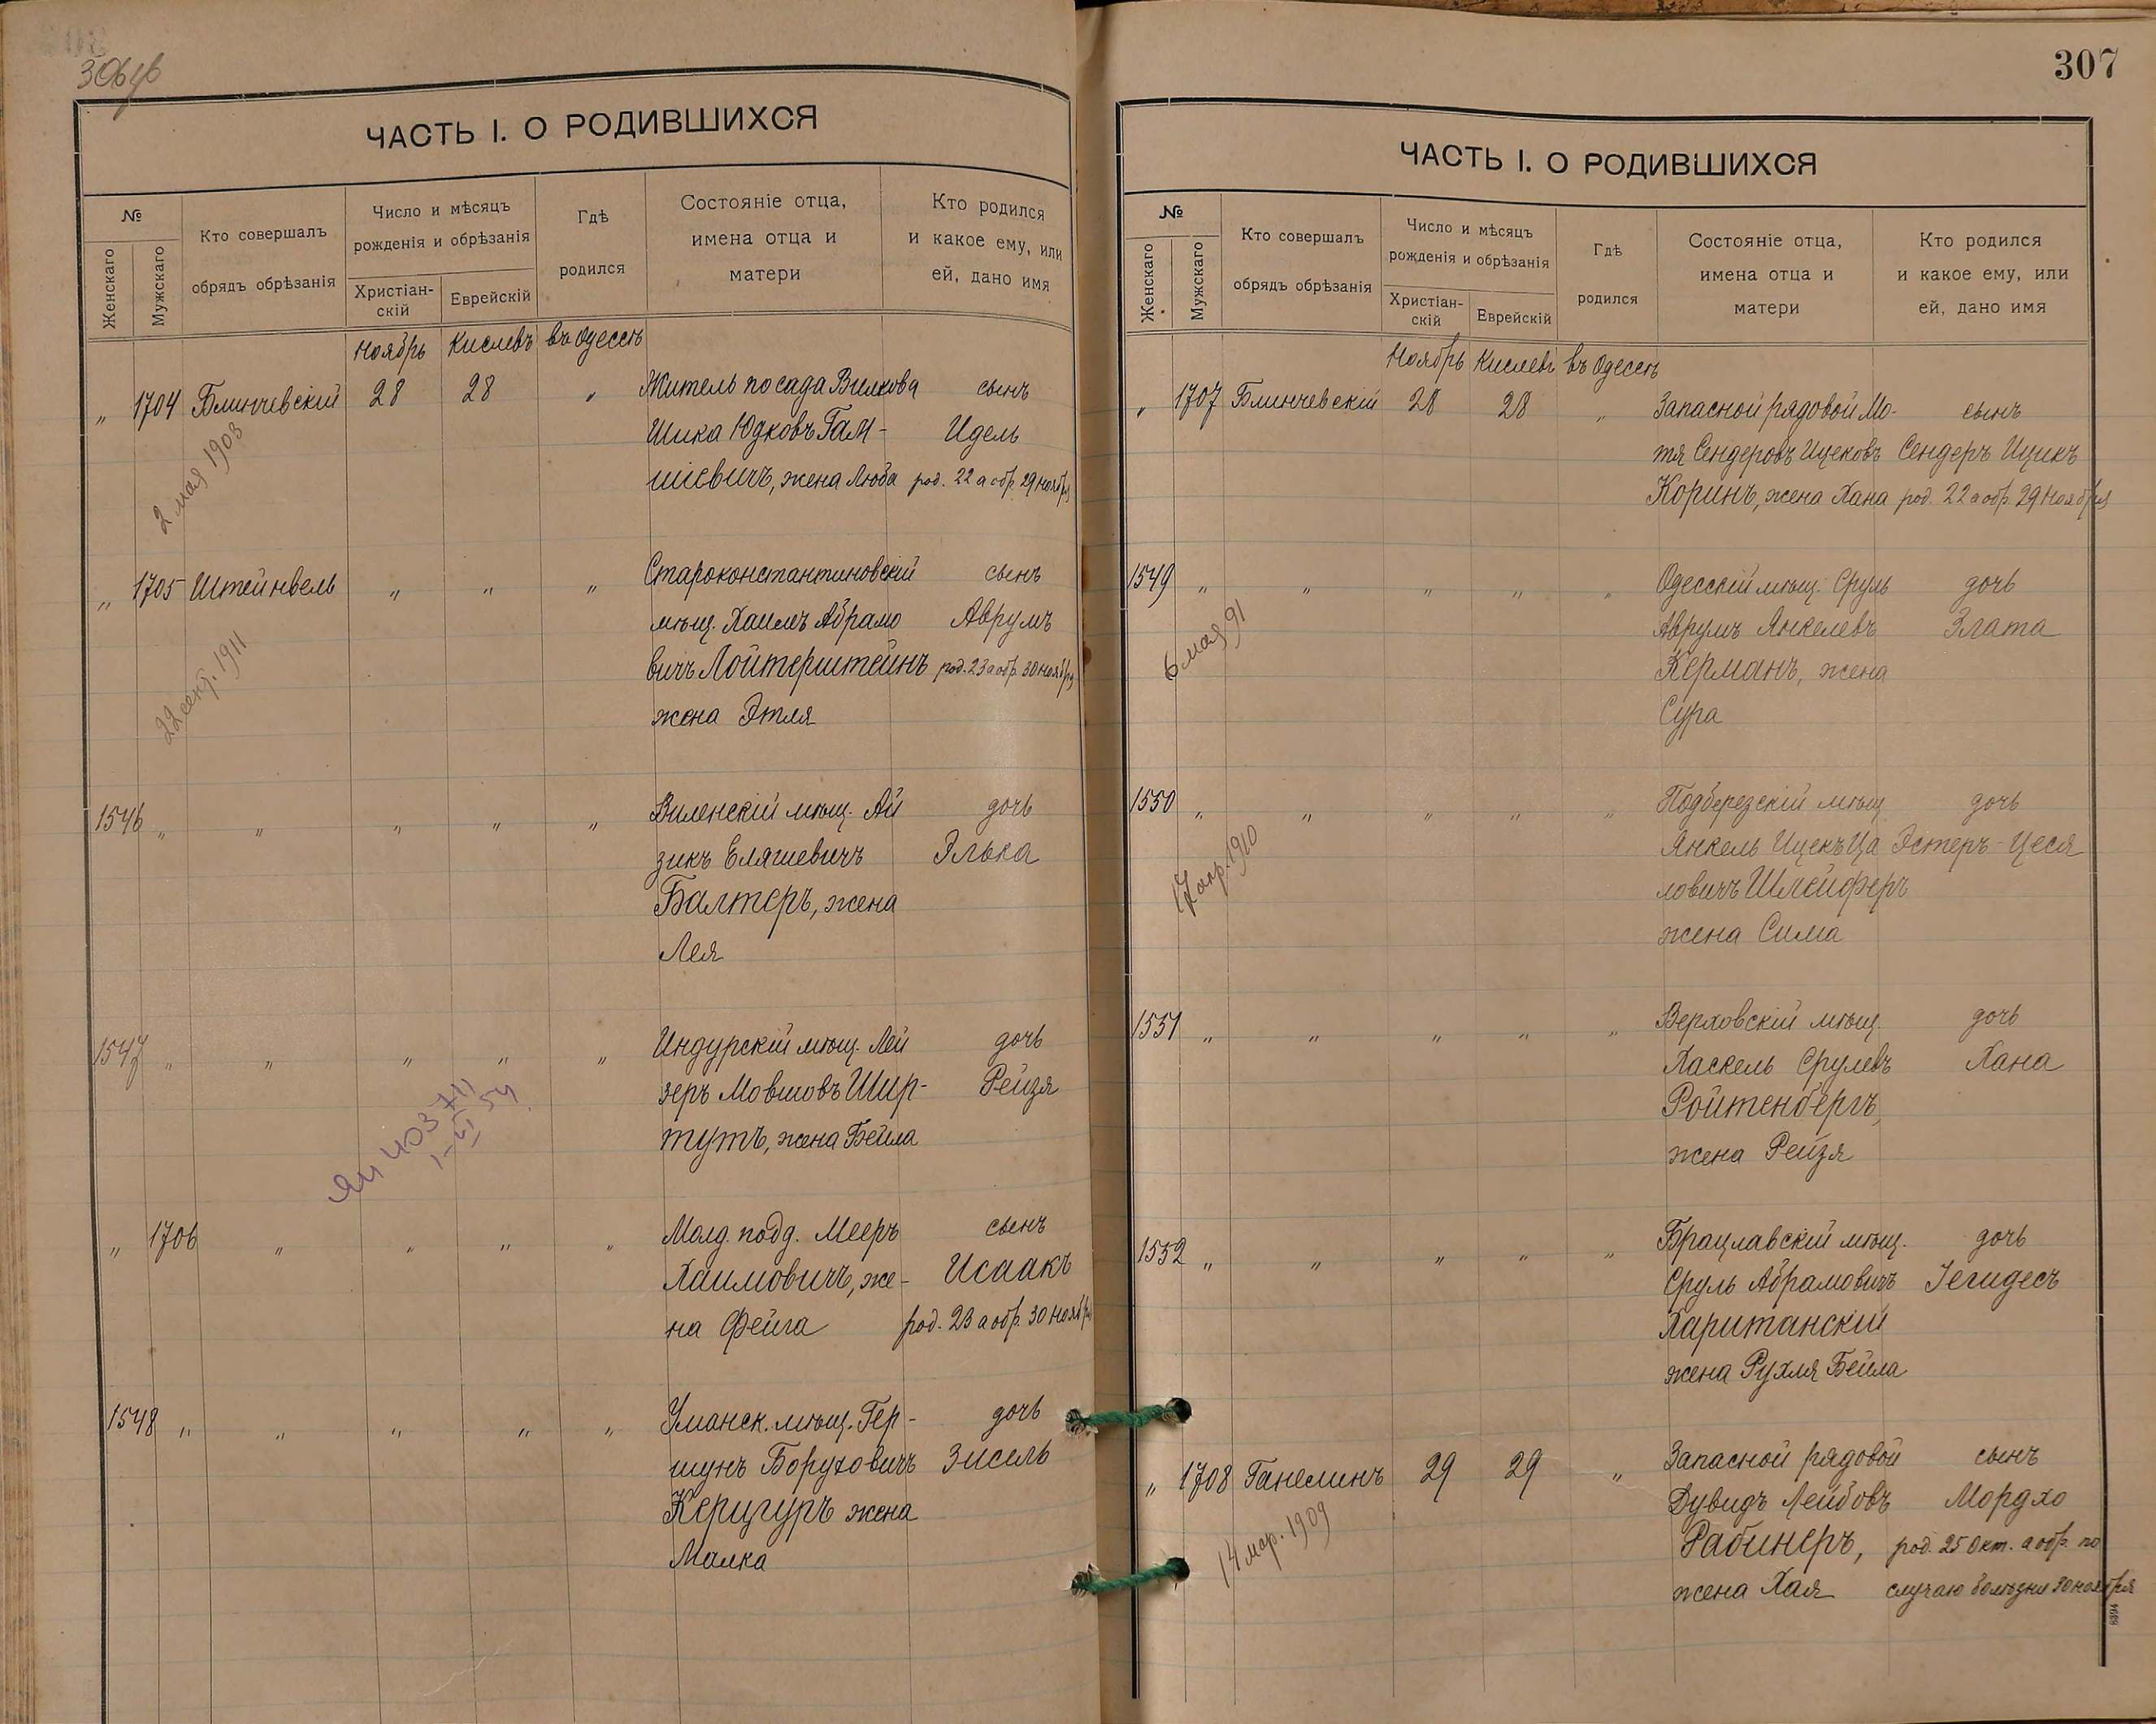 306 об
ЧАСТЬ I. О РОДИВШИХСЯ
№
Женскаго
Мужскаго
Кто совершалъ
обрядъ обрѣзанія
Число и мѣсяцъ
рожденія и обрѣзанія
Христіан-
скій
Еврейскій
Гдѣ
родился
Состояніе отца,
имена отца и
матери
Кто родился
и какое ему, или
ей, дано имя
Ноябрь Кислевъ въ Одессѣ
„ 1704 Блинчевскій 28 28 „ Житель посада Вилкова сынъ
Шика Юдковъ Гам- Идель
шіевичъ, жена Люба род. 22 а обр. 29 ноября
2 мая 1903
„ 1705 Штейнвель „ „ „ Староконстантиновскій сынъ
мѣщ. Хаимъ Абрамо Аврумъ
вичъ Лойтерштейнъ род. 23 а обр. 30 ноября
жена Этля
22 сент. 1911
1546 „ „ „ „ „ Виленскій мѣщ. Ай дочь
зикъ Еляшевичъ Элька
Балтеръ, жена
Лея
1547 „ „ „ „ „ Индурскій мѣщ. Лей дочь
зеръ Мовшовъ Шир- Рейзя
тутъ, жена Бейла
1-VI 54
„ 1706 „ „ „ „ Молд. подд. Мееръ сынъ
Хаимовичъ, же- Исаакъ
на Фейга род. 23 а обр. 30 ноября
1548 „ „ „ „ „ Уманск. мѣщ. Гер- дочь
шунъ Боруховичъ Зисель
Керцгуръ жена
Малка
307
ЧАСТЬ I. О РОДИВШИХСЯ
№
Женскаго
Мужскаго
Кто совершалъ
обрядъ обрѣзанія
Число и мѣсяцъ
рожденія и обрѣзанія
Христіан-
скій
Еврейскій
Гдѣ
родился
Состояніе отца,
имена отца и
матери
Кто родился
и какое ему, или
ей, дано имя
Ноябрь Кислевъ въ Одессѣ
„ 1707 Блинчевскій 28 28 „ Запасной рядовой Мо- сынъ
тя Сендеровъ Ицековъ Сендеръ Ицикъ
Коринъ, жена Хана род. 22 а обр. 29 ноября
1549 „ „ „ „ „ Одесскій мѣщ. Сруль дочь
Аврумъ Янкелевъ Злата
Керманъ, жена
Сура
6 мая 91
1550 „ „ „ „ „ Подберезскій мѣщ. дочь
Янкель Ицекъ Ца Эстеръ-Цеся
ловичъ Шлейферъ
жена Сима
17 апр. 1910
1551 „ „ „ „ „ Верховскій мѣщ. дочь
Хаскель Срулевъ Хана
Ройтенбергъ,
жена Рейзя
1552 „ „ „ „ „ Брацлавскій мѣщ. дочь
Сруль Абрамовичъ Іегидесъ
Хаританскій
жена Рухля Бейла
„ 1708 Ганелинъ 29 29 „ Запасной рядовой сынъ
Дувидъ Лейбовъ Мордхо
Рабинеръ, род. 25 Окт. а обр. по
жена Хая случаю болѣзни 30 ноября
14 мар. 1909